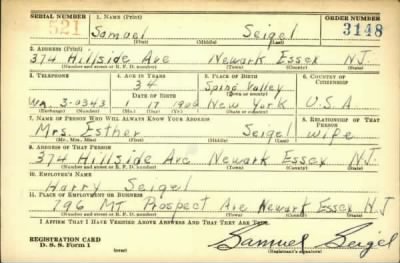 SERIAL NUMBER 1. NAME (Print) ORDER NUMBER
521 Samuel Seigel 3148
(First) (Middle) (Last)
2. ADDRESS (Print)
374 Hillside Ave Newark Essex N.J.
(Number and street or R. F. D. number) (Town) (County) (State)
3. TELEPHONE 4. AGE IN YEARS 5. PLACE OF BIRTH 6. COUNTRY OF CITIZENSHIP
34 Spring Valley
DATE OF BIRTH (Town or county)
WA. 3-0343 1 17 1906 New York U.S.A
(Exchange) (Number) (Mo.) (Day) (Yr.) (State or country)
7. NAME OF PERSON WHO WILL ALWAYS KNOW YOUR ADDRESS 8. RELATIONSHIP OF THAT PERSON
Mrs. Esther Seigel wife
(Mr., Mrs., Miss) (First) (Middle) (Last)
9. ADDRESS OF THAT PERSON
374 Hillside Ave Newark Essex N.J.
(Number and street or R. F. D. number) (Town) (County) (State)
10. EMPLOYER'S NAME
Harry Seigel
11. PLACE OF EMPLOYMENT OR BUSINESS
796 MT Prospect Ave Newark Essex N.J
(Number and street or R. F. D. number) (Town) (County) (State)
I AFFIRM THAT I HAVE VERIFIED ABOVE ANSWERS AND THAT THEY ARE TRUE.
REGISTRATION CARD
D. S. S. Form 1 (over) Samuel Seigel
(Registrant's signature)